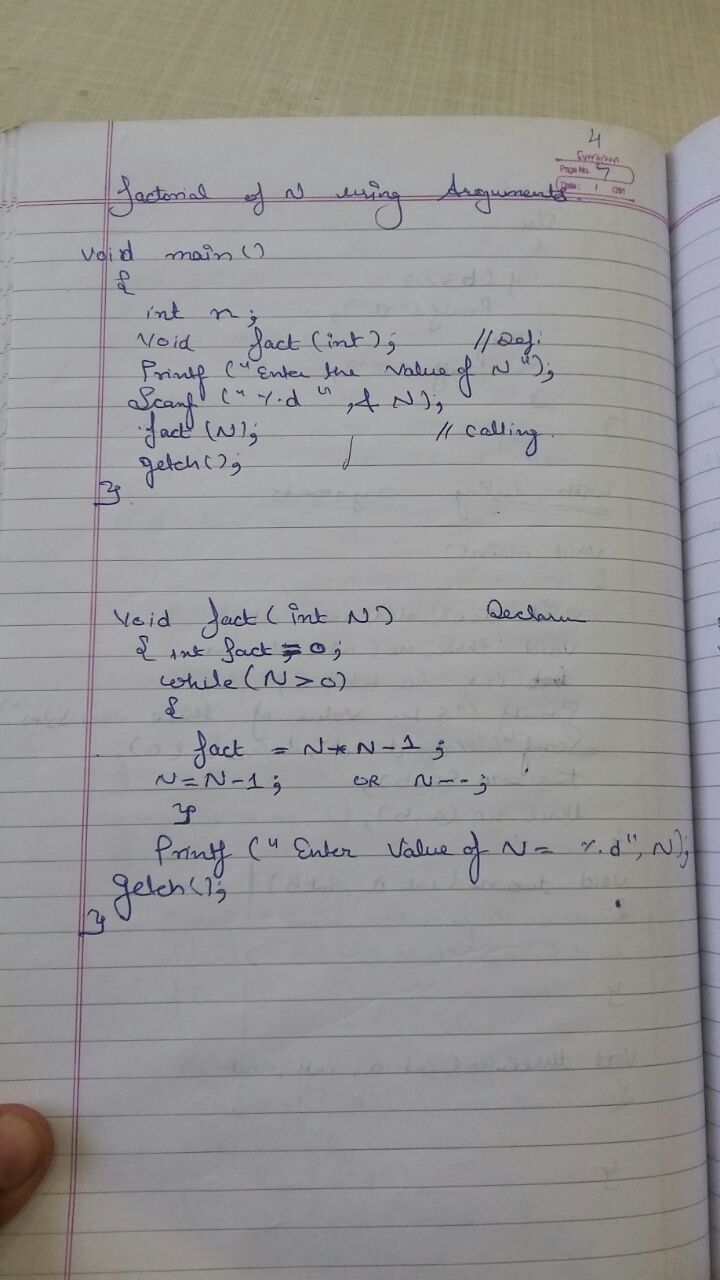 4
Evergreen
Page No. 7
Date: 1 /201
factorial of N using Arguments.
void main()
{
int n;
void fact (int); // Def:
Printf ("Enter the Value of N");
Scanf ("%d", & N);
fact (N); // calling.
getch();
}
void fact (int N)
{ int fact = 0;
while (N > 0)
{
fact = N * N - 1;
N = N - 1; OR N--;
}
Printf ("Enter Value of N = %d", N);
getch();
}